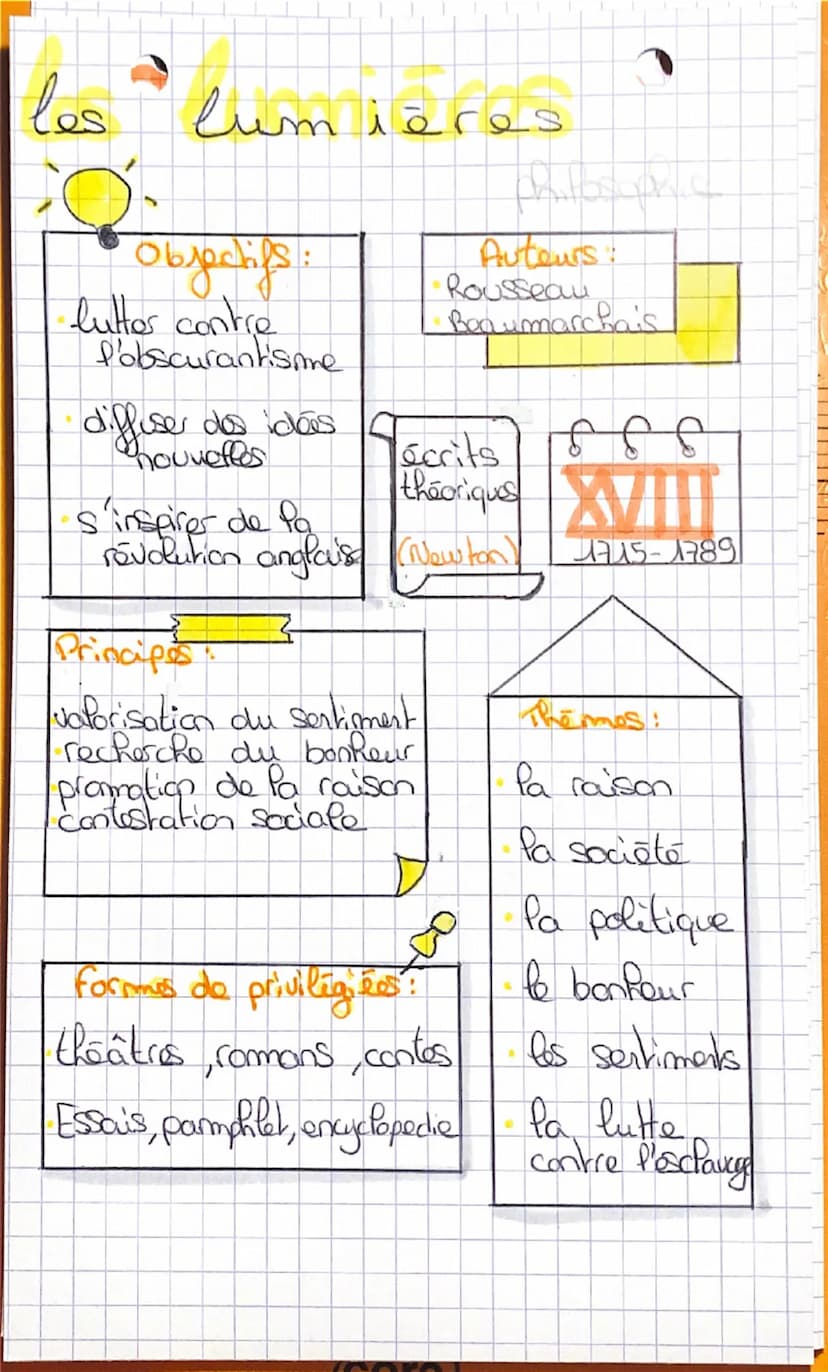 les lumières
philosophie
Objectifs :
lutter contre
l'obscurantisme
diffuser des idées
nouvelles
s'inspirer de la
révolution anglaise
Auteurs :
Rousseau
Beaumarchais
écrits
théoriques
(Newton)
XVIII
1715-1789
Principes :
valorisation du sentiment
recherche du bonheur
promotion de la raison
contestation sociale
Thèmes :
la raison
la société
la politique
le bonheur
les sentiments
la lutte
contre l'esclavage
formes de privilégiées :
théâtres, romans, contes
Essais, pamphlet, encyclopedie